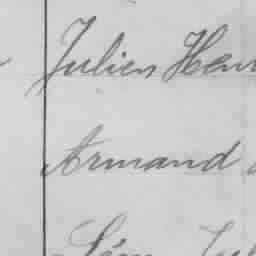 Julien Hen
Armand
Léon Jul